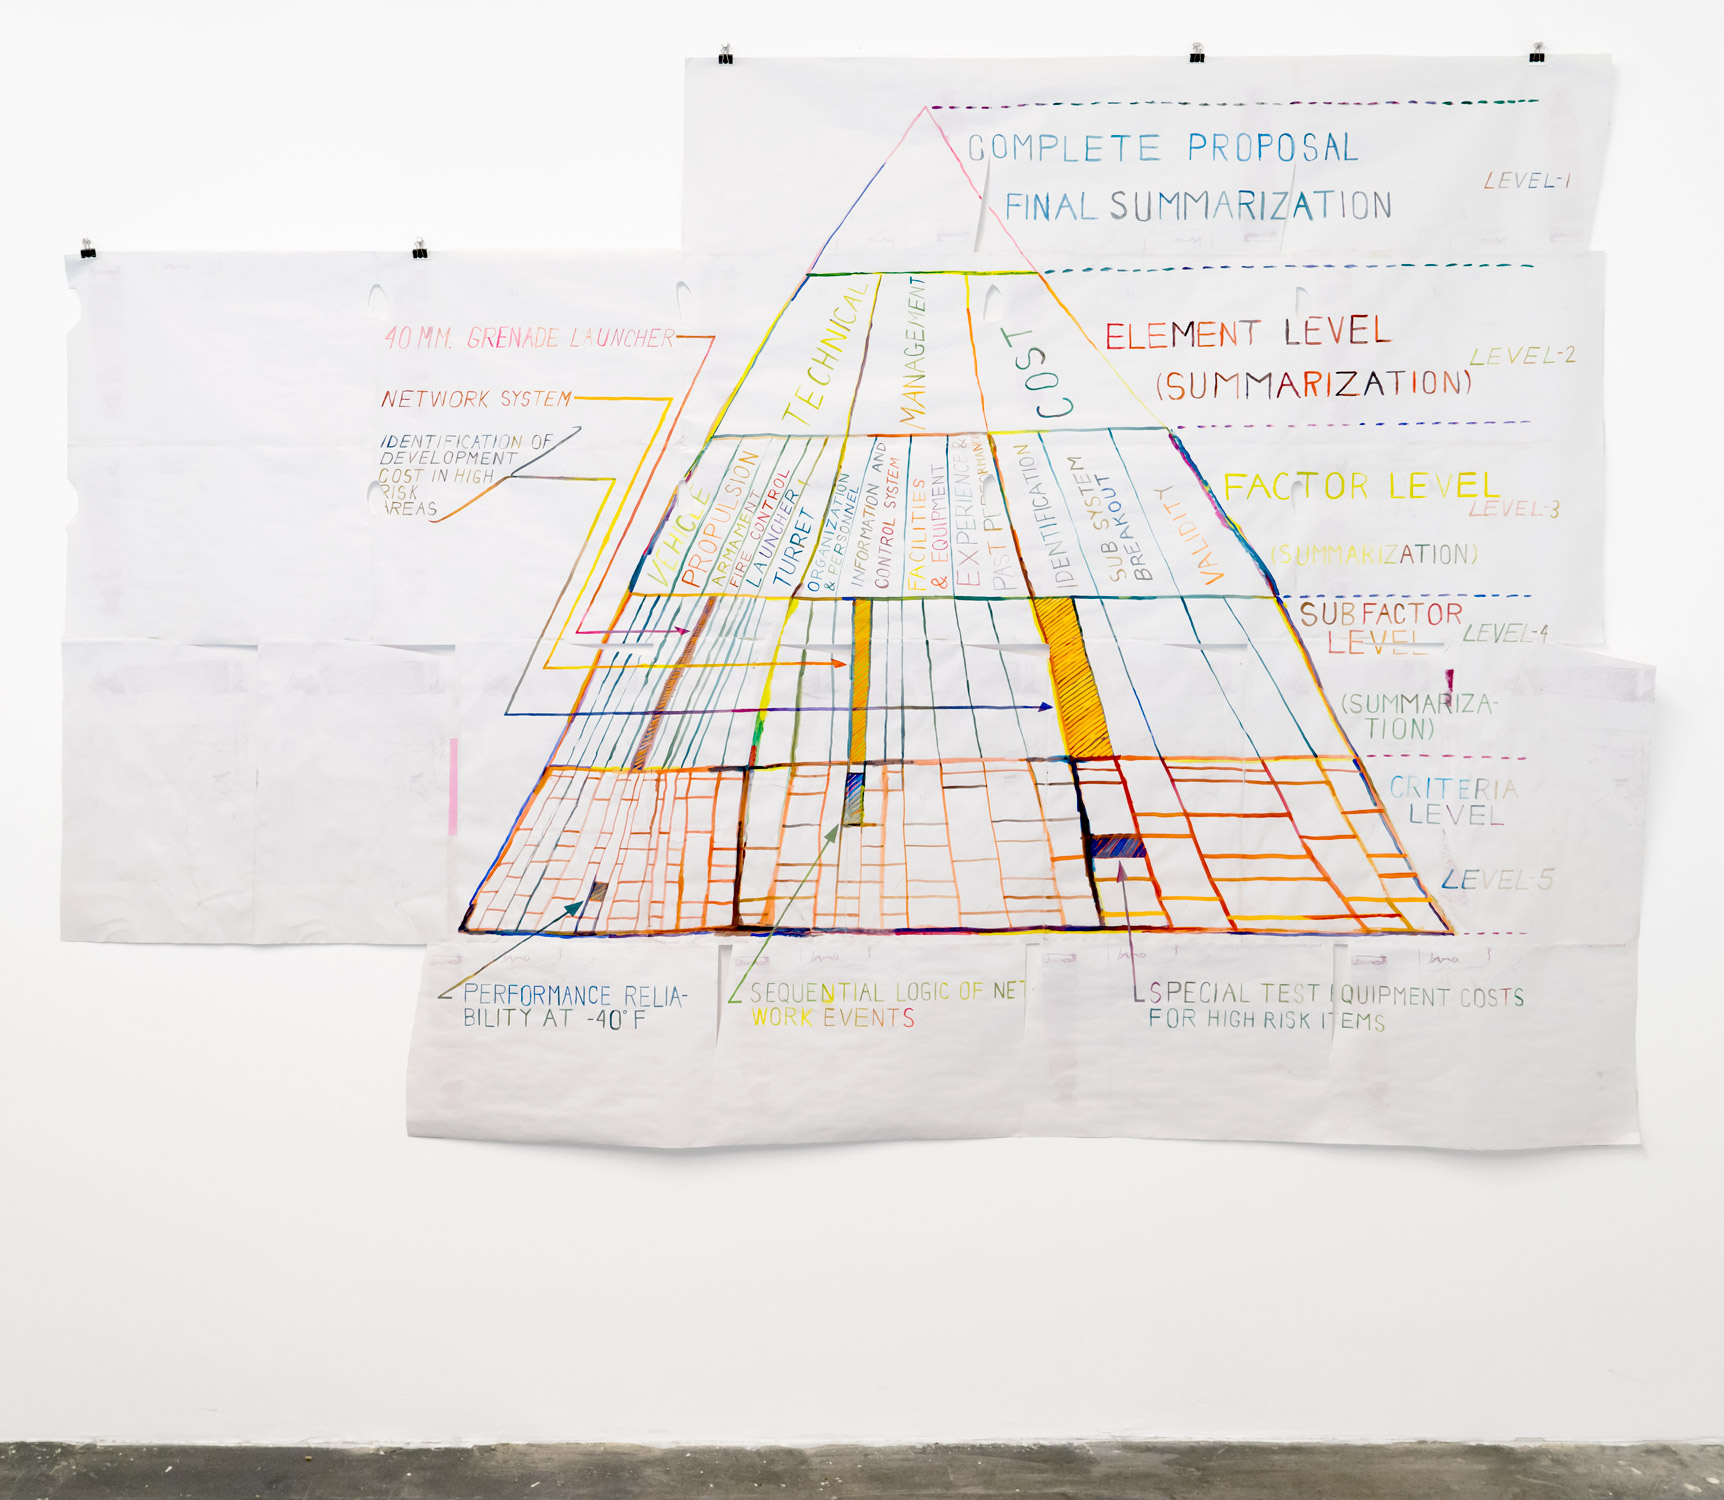 COMPLETE PROPOSAL
LEVEL-1
FINAL SUMMARIZATION
40 MM. GRENADE LAUNCHER
NETWORK SYSTEM
IDENTIFICATION OF
DEVELOPMENT
COST IN HIGH
RISK
AREAS
TECHNICAL
MANAGEMENT
COST
ELEMENT LEVEL
LEVEL-2
(SUMMARIZATION)
VEHICLE
PROPULSION
ARMAMENT
FIRE CONTROL
LAUNCHER
TURRET
ORGANIZATION
& PERSONNEL
INFORMATION AND
CONTROL SYSTEM
FACILITIES
& EQUIPMENT
EXPERIENCE &
PAST PERFORMANC
IDENTIFICATION
SUB SYSTEM
BREAKOUT
VALIDITY
FACTOR LEVEL
LEVEL-3
(SUMMARIZATION)
SUBFACTOR
LEVEL
LEVEL-4
(SUMMARIZA-
TION)
CRITERIA
LEVEL
LEVEL-5
PERFORMANCE RELIA-
BILITY AT -40°F
SEQUENTIAL LOGIC OF NET-
WORK EVENTS
SPECIAL TEST EQUIPMENT COSTS
FOR HIGH RISK ITEMS